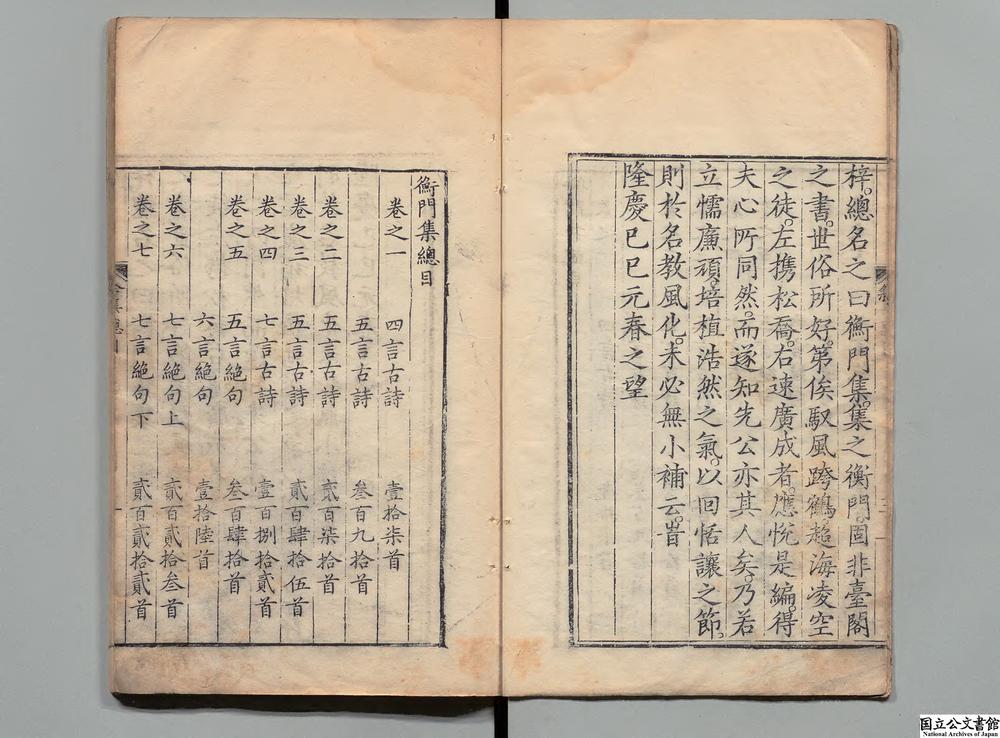 梓總名之曰衡門集集之衡門固非臺閣
之書世俗所好第俟馭風跨鶴超海凌空
之徒左携松喬右速廣成者應悅是編得
夫心所同然而遂知先公亦其人矣乃若
立懦廉頑培植浩然之氣以回恬讓之節
則於名教風化未必無小補云旹
隆慶已巳元春之望
衡門集總目
卷之一 四言古詩 壹拾柒首
五言古詩 叁百九拾首
卷之二 五言古詩 貳百柒拾首
卷之三 五言古詩 貳百肆拾伍首
卷之四 七言古詩 壹百捌拾貳首
卷之五 五言絕句 叁百肆拾首
六言絕句 壹拾陸首
卷之六 七言絕句上 貳百貳拾叁首
卷之七 七言絕句下 貳百貳拾貳首
国立公文書館
National Archives of Japan